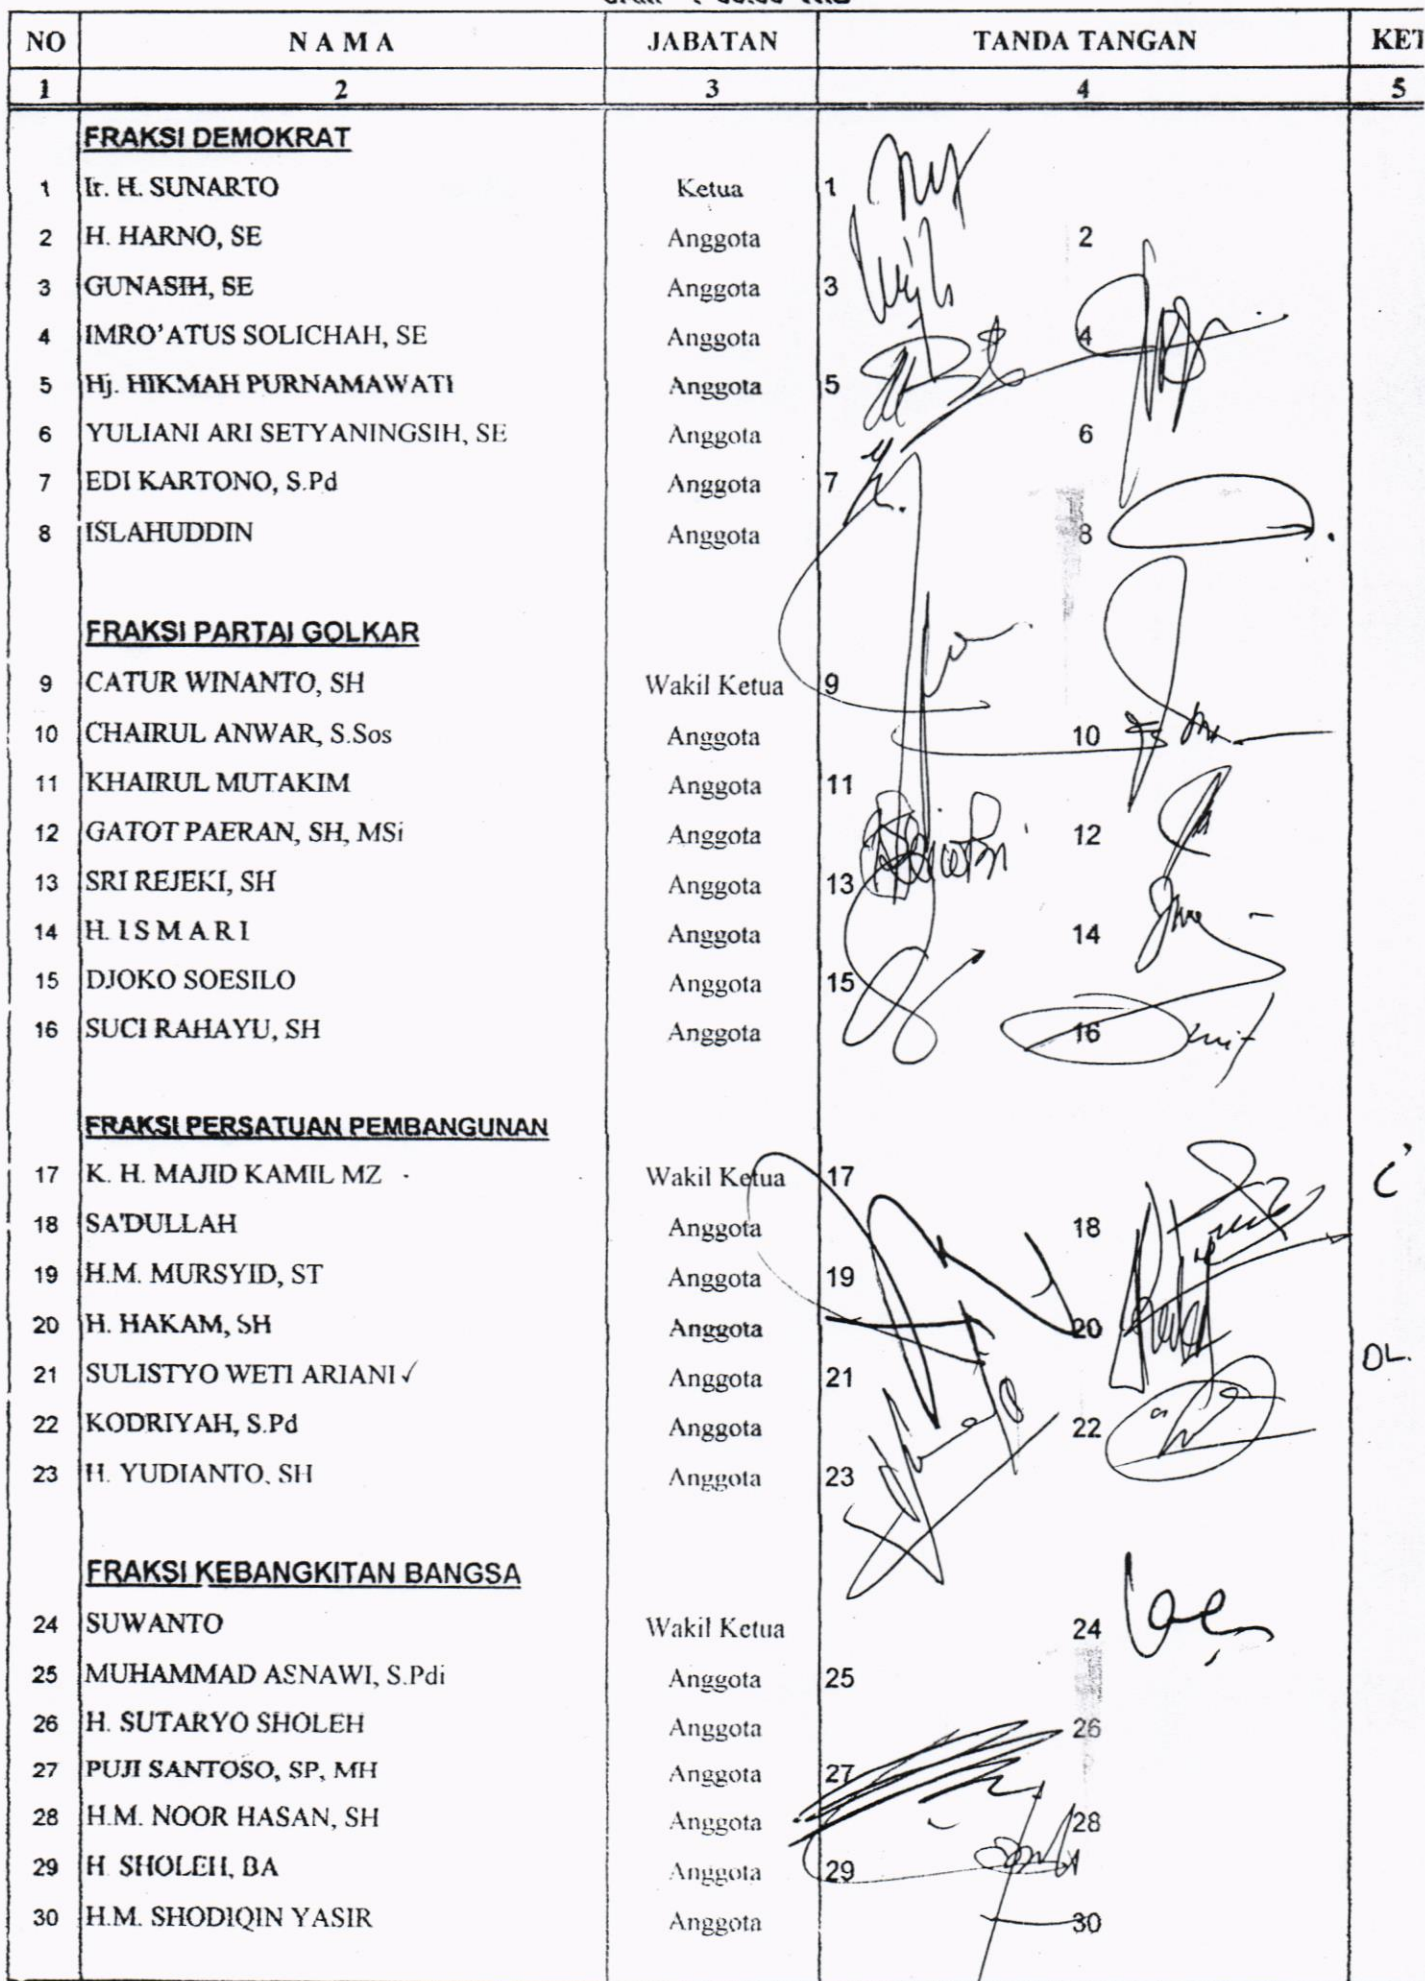 NO N A M A JABATAN TANDA TANGAN KET
1 2 3 4 5
FRAKSI DEMOKRAT
1 Ir. H. SUNARTO Ketua 1
2 H. HARNO, SE Anggota 2
3 GUNASIH, SE Anggota 3
4 IMRO'ATUS SOLICHAH, SE Anggota 4
5 Hj. HIKMAH PURNAMAWATI Anggota 5
6 YULIANI ARI SETYANINGSIH, SE Anggota 6
7 EDI KARTONO, S.Pd Anggota 7
8 ISLAHUDDIN Anggota 8
FRAKSI PARTAI GOLKAR
9 CATUR WINANTO, SH Wakil Ketua 9
10 CHAIRUL ANWAR, S.Sos Anggota 10
11 KHAIRUL MUTAKIM Anggota 11
12 GATOT PAERAN, SH, MSi Anggota 12
13 SRI REJEKI, SH Anggota 13
14 H. I S M A R I Anggota 14
15 DJOKO SOESILO Anggota 15
16 SUCI RAHAYU, SH Anggota 16
FRAKSI PERSATUAN PEMBANGUNAN
17 K. H. MAJID KAMIL MZ Wakil Ketua 17
18 SA'DULLAH Anggota 18
19 H.M. MURSYID, ST Anggota 19
20 H. HAKAM, SH Anggota 20
21 SULISTYO WETI ARIANI ✓ Anggota 21 DL.
22 KODRIYAH, S.Pd Anggota 22
23 H. YUDIANTO, SH Anggota 23
FRAKSI KEBANGKITAN BANGSA
24 SUWANTO Wakil Ketua 24
25 MUHAMMAD ASNAWI, S.Pdi Anggota 25
26 H. SUTARYO SHOLEH Anggota 26
27 PUJI SANTOSO, SP, MH Anggota 27
28 H.M. NOOR HASAN, SH Anggota 28
29 H. SHOLEH, BA Anggota 29
30 H.M. SHODIQIN YASIR Anggota 30